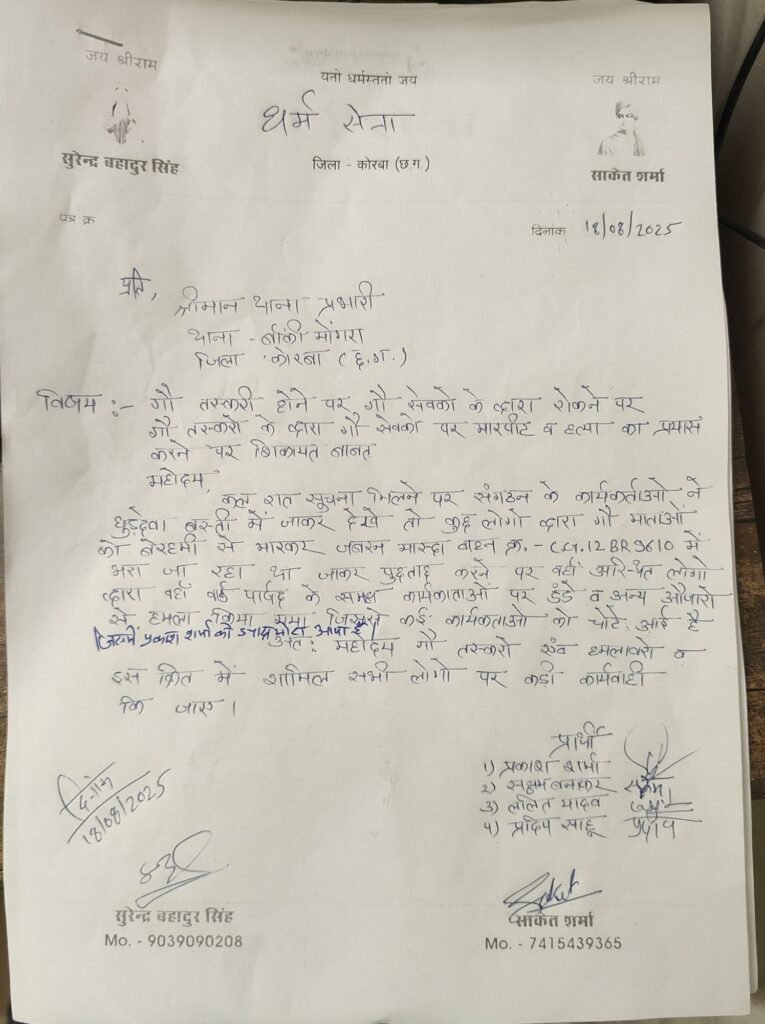 जय श्रीराम
यतो धर्मस्ततो जय
जय श्रीराम
धर्म सेना
सुरेन्द्र बहादुर सिंह
जिला - कोरबा (छ.ग.)
साकेत शर्मा
पत्र क्र
दिनांक 18/08/2025
प्रति,
श्रीमान थाना प्रभारी
थाना - बाँकी मोंगरा
जिला कोरबा (छ.ग.)
विषय :- गौ तस्करी होने पर गौ सेवको के द्वारा रोकने पर
गौ तस्करो के द्वारा गौ सेवको पर मारपीट व हत्या का प्रयास
करने पर शिकायत बाबत
महोदय,
कल रात सूचना मिलने पर संगठन के कार्यकर्ताओ ने
घुड़देवा बस्ती में जाकर देखे तो कुछ लोगो द्वारा गौ माताओं
को बेरहमी से मारकर जबरन माल्दा वाहन क्र. - CG.12 BR 9610 में
भरा जा रहा था जाकर पुछताछ करने पर वहाँ उपस्थित लोगो
द्वारा वहाँ वार्ड पार्षद के समक्ष कार्यकर्ताओं पर डंडे व अन्य औजारो
से हमला किया गया जिससे कई कार्यकर्ताओ को चोटे आई है
जिसमें प्रकाश शर्मा को ज्यादा चोट आया है।
अतः महोदय गौ तस्करो एंव हमलावरो व
इस क्रित में शामिल सभी लोगो पर कड़ी कार्यवाही
कि जाए।
प्रार्थी
1) प्रकाश शर्मा
2) सक्षम बनाकर
3) ललित यादव
4) प्रदिप साहू प्रदीप
दिनांक
18/08/2025
सुरेन्द्र बहादुर सिंह
Mo. - 9039090208
Saket
साकेत शर्मा
Mo. - 7415439365